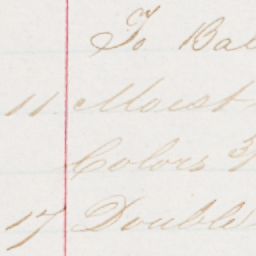 To Bal
11 Moist
Colors 3/
17 Double